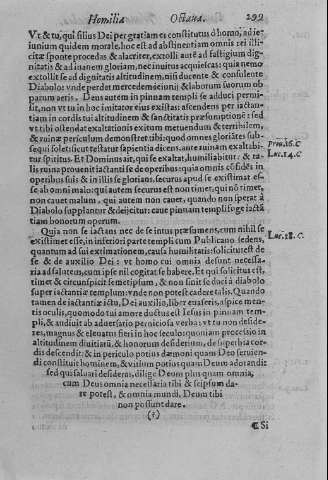 Homilia Octaua. 292
Vt & tu, qui filius Dei per gratiam es constitutus ò homo, ad ie-
iunium quidem morale, hoc est ad abstinentiam omnis rei illi-
citæ sponte procedas & alacriter, extolli autē ad fastigium dig-
nitatis & ad inanem gloriam, nec inuitus acquiescas: quia nemo
extollitse ad dignitatis altitudinem, nisi ducente & consulente
Diabolo: vnde perdet mercedem ieiunij & laborum suorum ob
parum aeris. Deus autem in pinnam templi se adduci permi-
sit, non vt tu in hoc imitator eius existas: ascendens per iactan-
tiam in cordis tui altitudinem & sanctitatis præsumptionē: sed
vt tibi ostendat exaltationis exitum metuendum & terribilem,
& ruinæ periculum demonstret tibi: quod omnes gloriātes sub-
sequi solet: sicut testatur sapientia dicens, ante ruinam exaltabi-
tur spiritus. Et Dominus ait, qui se exaltat, humiliabitur: & ta-
lis ruina prouenit iactanti se de operibus: quia omnis cōfidēs in
operibus suis & in illis se glorians, securus apud se existimat es-
se ab omni malo: qui autem securus est non timet, qui nō timet,
non cauet malum, qui autem non cauet, quando non sperat à
Diabolo supplantatur & deijcitur: caue pinnam templi fuge iactā
tiam bonorum operum.
Quia non se iactans nec de se intus præsumens, cum nihil se
existimet esse, in inferiori parte templi cum Publicano sedens,
quantum ad sui existimationem, causa humilitatis: solicitus est de
se & de auxilio Dei: vt homo cui omnia desunt necessa-
ria ad salutem, cum ipse nil cogitat se habere. Et qui solicitus est,
timet & circumspicit semetipsum, & non sinit se duci à diabolo
super iactantiæ templum: vnde non potest cadere talis. Quando
tamen de iactantiæ ictu, Dei auxilio, liber euaseris, aspice men-
tis oculis, quomodo tui amore ductus est Iesus in pinnam tem-
pli, & audiuit ab aduersario perniciosa verba: vt tu non deside-
res, magnus & eleuatus fieri in hoc seculo: quoniam processio in
altitudinem diuitiarū, & honorum desiderium, de superbia cor-
dis descendit: & in periculo potius dæmoni quam Deo seruien-
di constituit hominem, & vitulum potius quam Deum adorandi:
sed qui saluari desideras, dilige Deum plus quam omnia,
cum Deus omnia necessaria tibi & seipsum da-
re potest, & omnia mundi, Deum tibi
non possunt dare.
(?)
Prou. 16. C
Luc. 14. C
Luc. 18. C.
¶ Si